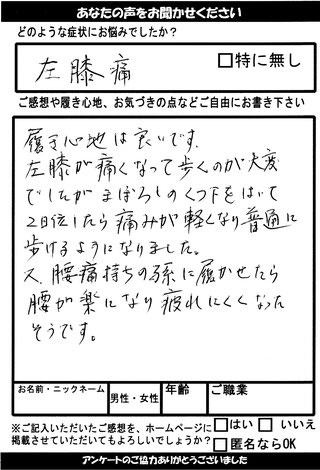 あなたの声をお聞かせください
どのような症状にお悩みでしたか？
左膝痛
□特に無し
ご感想や履き心地、お気づきの点などご自由にお書き下さい
履き心地は良いです.
左膝が痛くなって歩くのが大変
でしたがまぼろしのくつ下をはいて
2日位したら痛みが軽くなり普通に
歩けるようになりました。
又、腰痛持ちの孫に履かせたら
腰が楽になり疲れにくくなった
そうです。
お名前・ニックネーム
男性・女性
年齢
ご職業
※ご記入いただいたご感想を、ホームページに
掲載させていただいてもよろしいでしょうか？
□はい □いいえ
□匿名ならOK
アンケートのご協力ありがとうございました